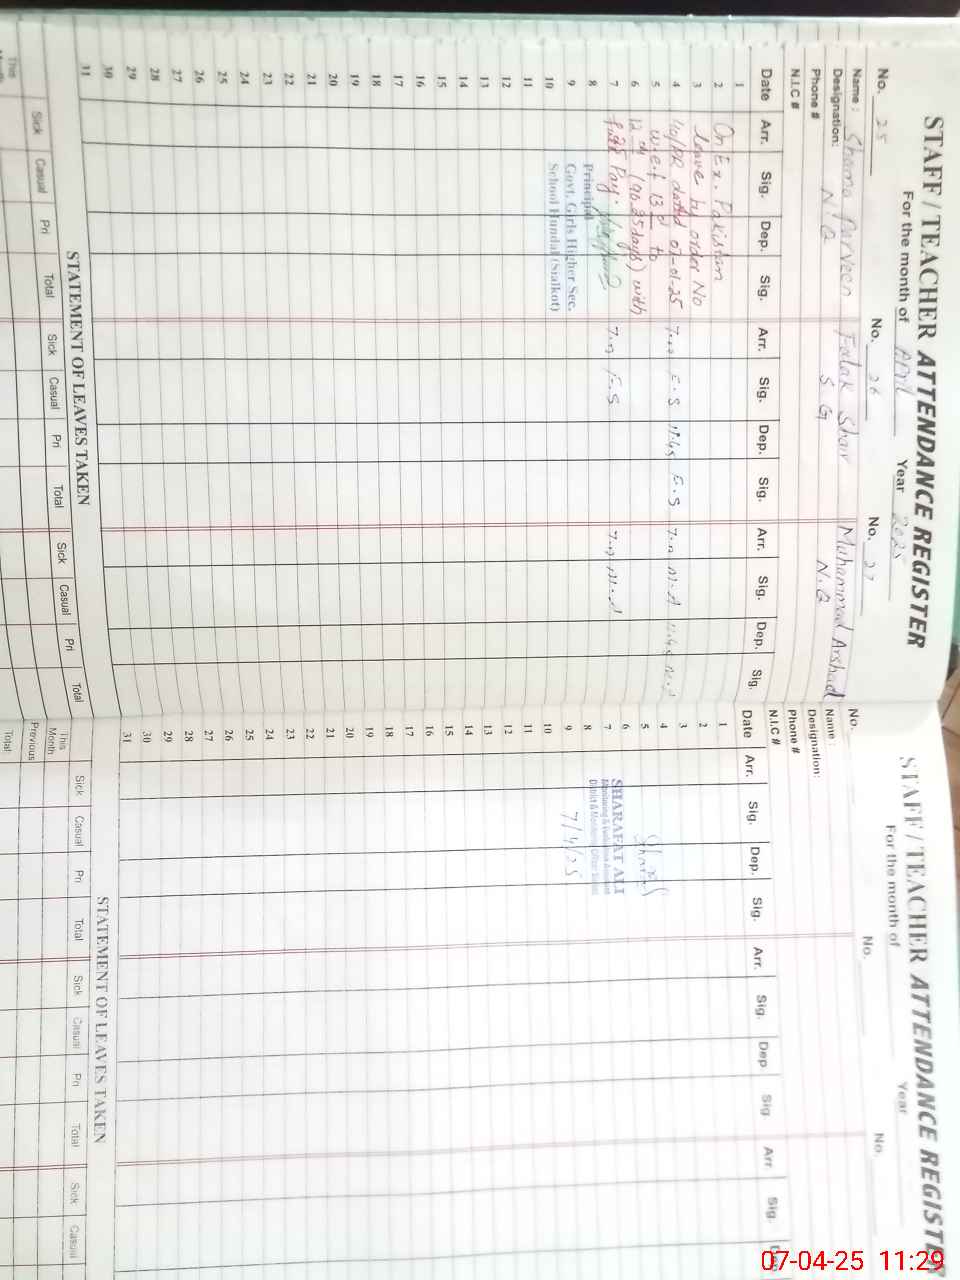 STAFF / TEACHER ATTENDANCE REGISTER
For the month of April Year 2025
No. 25 No. 26 No. 27
Name : Shama Parveen Falak Shair Muhammad Arshad
Designation: N.Q S G N.Q
Phone #
N.I.C #
Date Arr. Sig. Dep. Sig. Arr. Sig. Dep. Sig. Arr. Sig. Dep. Sig.
1
2 On Ex. Pakistan
3 leave by order No
4 110/PR dated 01-01-25 7.00 F.S 11:45 F.S 7.00 M.A 11:45 M.A
5 w.e.f 13 to
6 12 (90,25 days) with
7 full Pay. 7.00 F.S 7.00 M.A
8 Principal
9 Govt. Girls Higher Sec.
10 School Hundal (Sialkot)
11
12
13
14
15
16
17
18
19
20
21
22
23
24
25
26
27
28
29
30
31
STATEMENT OF LEAVES TAKEN
Sick Casual Pri Total Sick Casual Pri Total Sick Casual Pri Total
This
STAFF / TEACHER ATTENDANCE REGISTER
For the month of Year
No. No. No.
Name :
Designation:
Phone #
N.I.C #
Date Arr. Sig. Dep. Sig. Arr. Sig. Dep Sig. Arr. Sig.
1
2
3
4
5
6
7
8
9
10
11
12
13
14
15
16
17
18
19
20
21
22
23
24
25
26
27
28
29
30
31
SHARAFAT ALI
7/4/25
STATEMENT OF LEAVES TAKEN
Sick Casual Pri Total Sick Casual Pri Total Sick Casual
This Month
Previous
Total
07-04-25 11:29